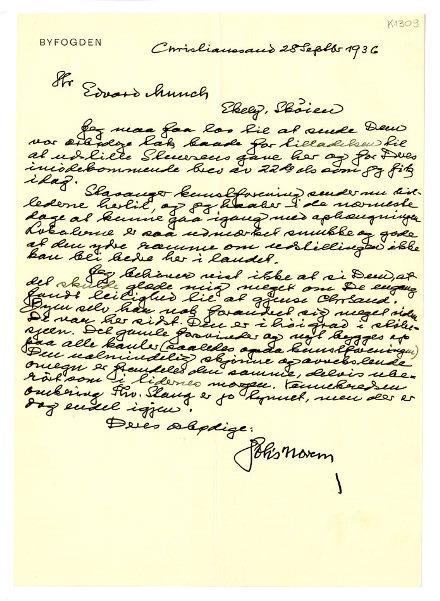 K1303
BYFOGDEN
Christianssand 28 Septbr 1936
Hr
Edvard Munch
Ekely, Skøien
Jeg maa faa lov til at sende Dem
vor ærbødige tak baade for tilladelsen til
at utstille Stenersens gave her og for Deres
imødekommende brev av 22de ds som jeg fik
idag.
Stavanger kunstforening sender nu bil-
lederne hertil, og jeg haaber i de nærmeste
dage at kunne gaa igang med ophængningen
Lokalerne er saa utmærket smukke og gode
at den ydre ramme om utstillingen ikke
kan bli bedre her i landet.
Jeg behøver vist ikke at si Dem, at
det skulde glæde mig meget om De engang
fandt leilighet til at gjense Chrsand.
Byen selv har nok forandret sig meget siden
De var her sidst. Den er i høi grad i støpe-
skeen. Det gamle forsvinder og nyt bygges op
paa alle kanter (saaledes ogsaa kunstforeningen)
Den ualmindelig skjønne og avvekslende
omegn er fremdeles den samme, delvis ube-
rørt som i tidernes morgen.
omkring Thv. Slang er jo tynnet, men der er
dog endel igjen.
Deres ærbødige:
Johs Norem